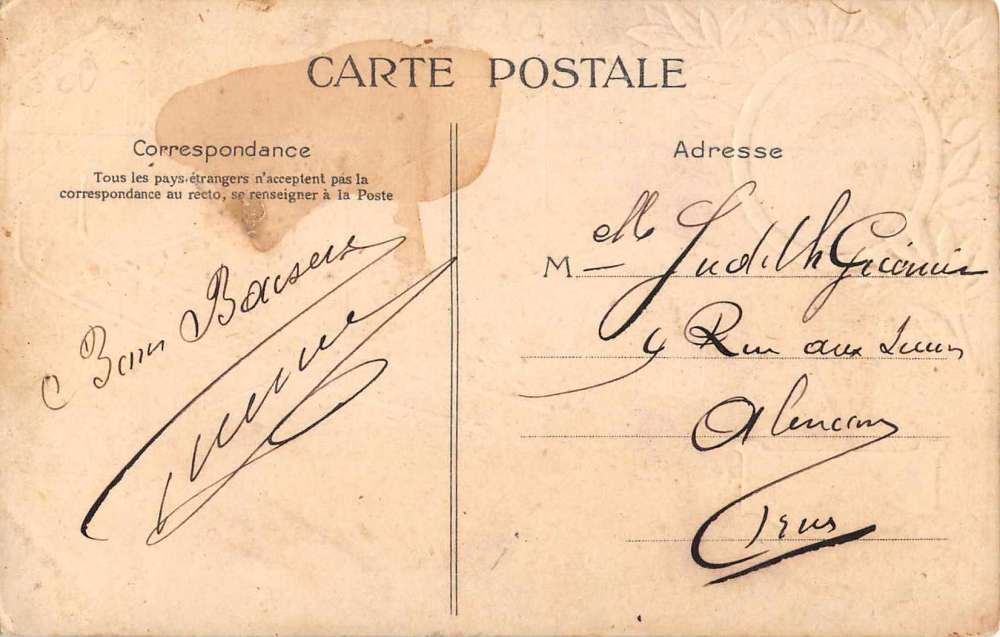 CARTE POSTALE
Correspondance
Tous les pays étrangers n'acceptent pas la
correspondance au recto, se renseigner à la Poste
Bons Baisers
Adresse
M — elle Judith
9 Rue aux
Alencon
Orne